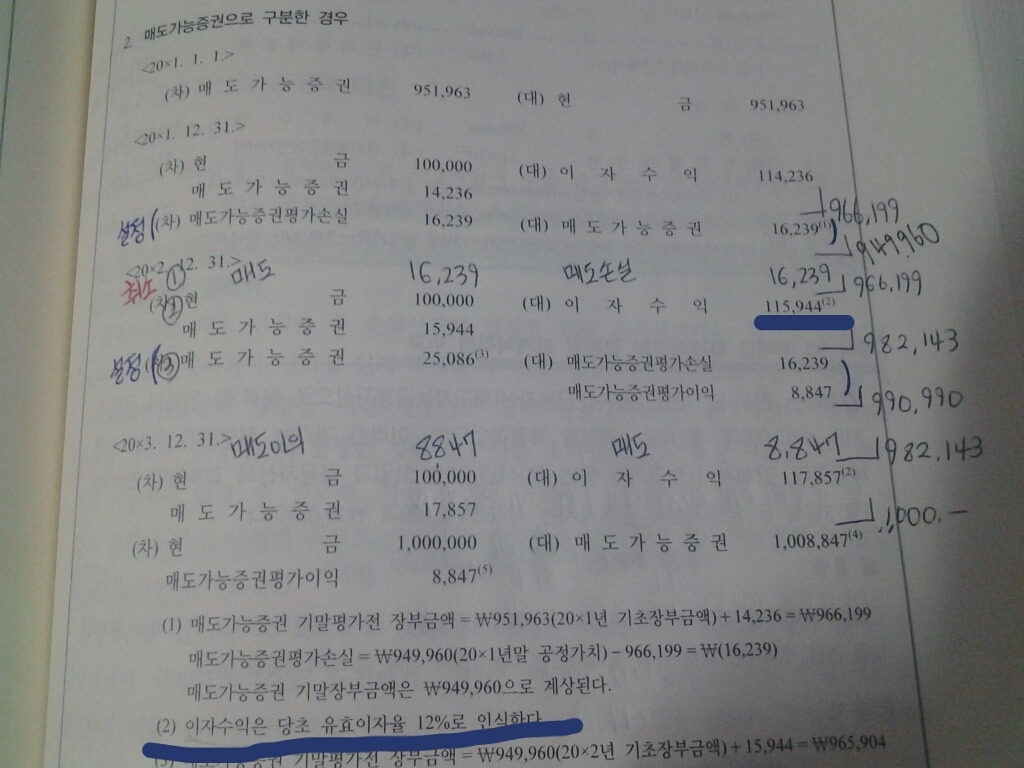 2. 매도가능증권으로 구분한 경우
<20×1. 1. 1.>
(차) 매 도 가 능 증 권 951,963 (대) 현 금 951,963
<20×1. 12. 31.>
(차) 현 금 100,000 (대) 이 자 수 익 114,236
매 도 가 능 증 권 14,236
966,199
설정 (차) 매도가능증권평가손실 16,239 (대) 매 도 가 능 증 권 16,239(1)
949,960
<20×2. 12. 31.>
취소 ① 매도 16,239 매도손실 16,239 966,199
② 현 금 100,000 (대) 이 자 수 익 115,944(2)
매 도 가 능 증 권 15,944
982,143
설정 ③ 매 도 가 능 증 권 25,086(3) (대) 매도가능증권평가손실 16,239
매도가능증권평가이익 8,847
990,990
<20×3. 12. 31.> 매도이익 8847 매도 8,847 982,143
(차) 현 금 100,000 (대) 이 자 수 익 117,857(2)
매 도 가 능 증 권 17,857
1,000.-
(차) 현 금 1,000,000 (대) 매 도 가 능 증 권 1,008,847(4)
매도가능증권평가이익 8,847(5)
(1) 매도가능증권 기말평가전 장부금액 = ₩951,963(20×1년 기초장부금액) + 14,236 = ₩966,199
매도가능증권평가손실 = ₩949,960(20×1년말 공정가치) − 966,199 = ₩(16,239)
매도가능증권 기말장부금액은 ₩949,960으로 계상된다.
(2) 이자수익은 당초 유효이자율 12%로 인식한다.
(3) 매도가능증권 기말평가전 장부금액 = ₩949,960(20×2년 기초장부금액) + 15,944 = ₩965,904